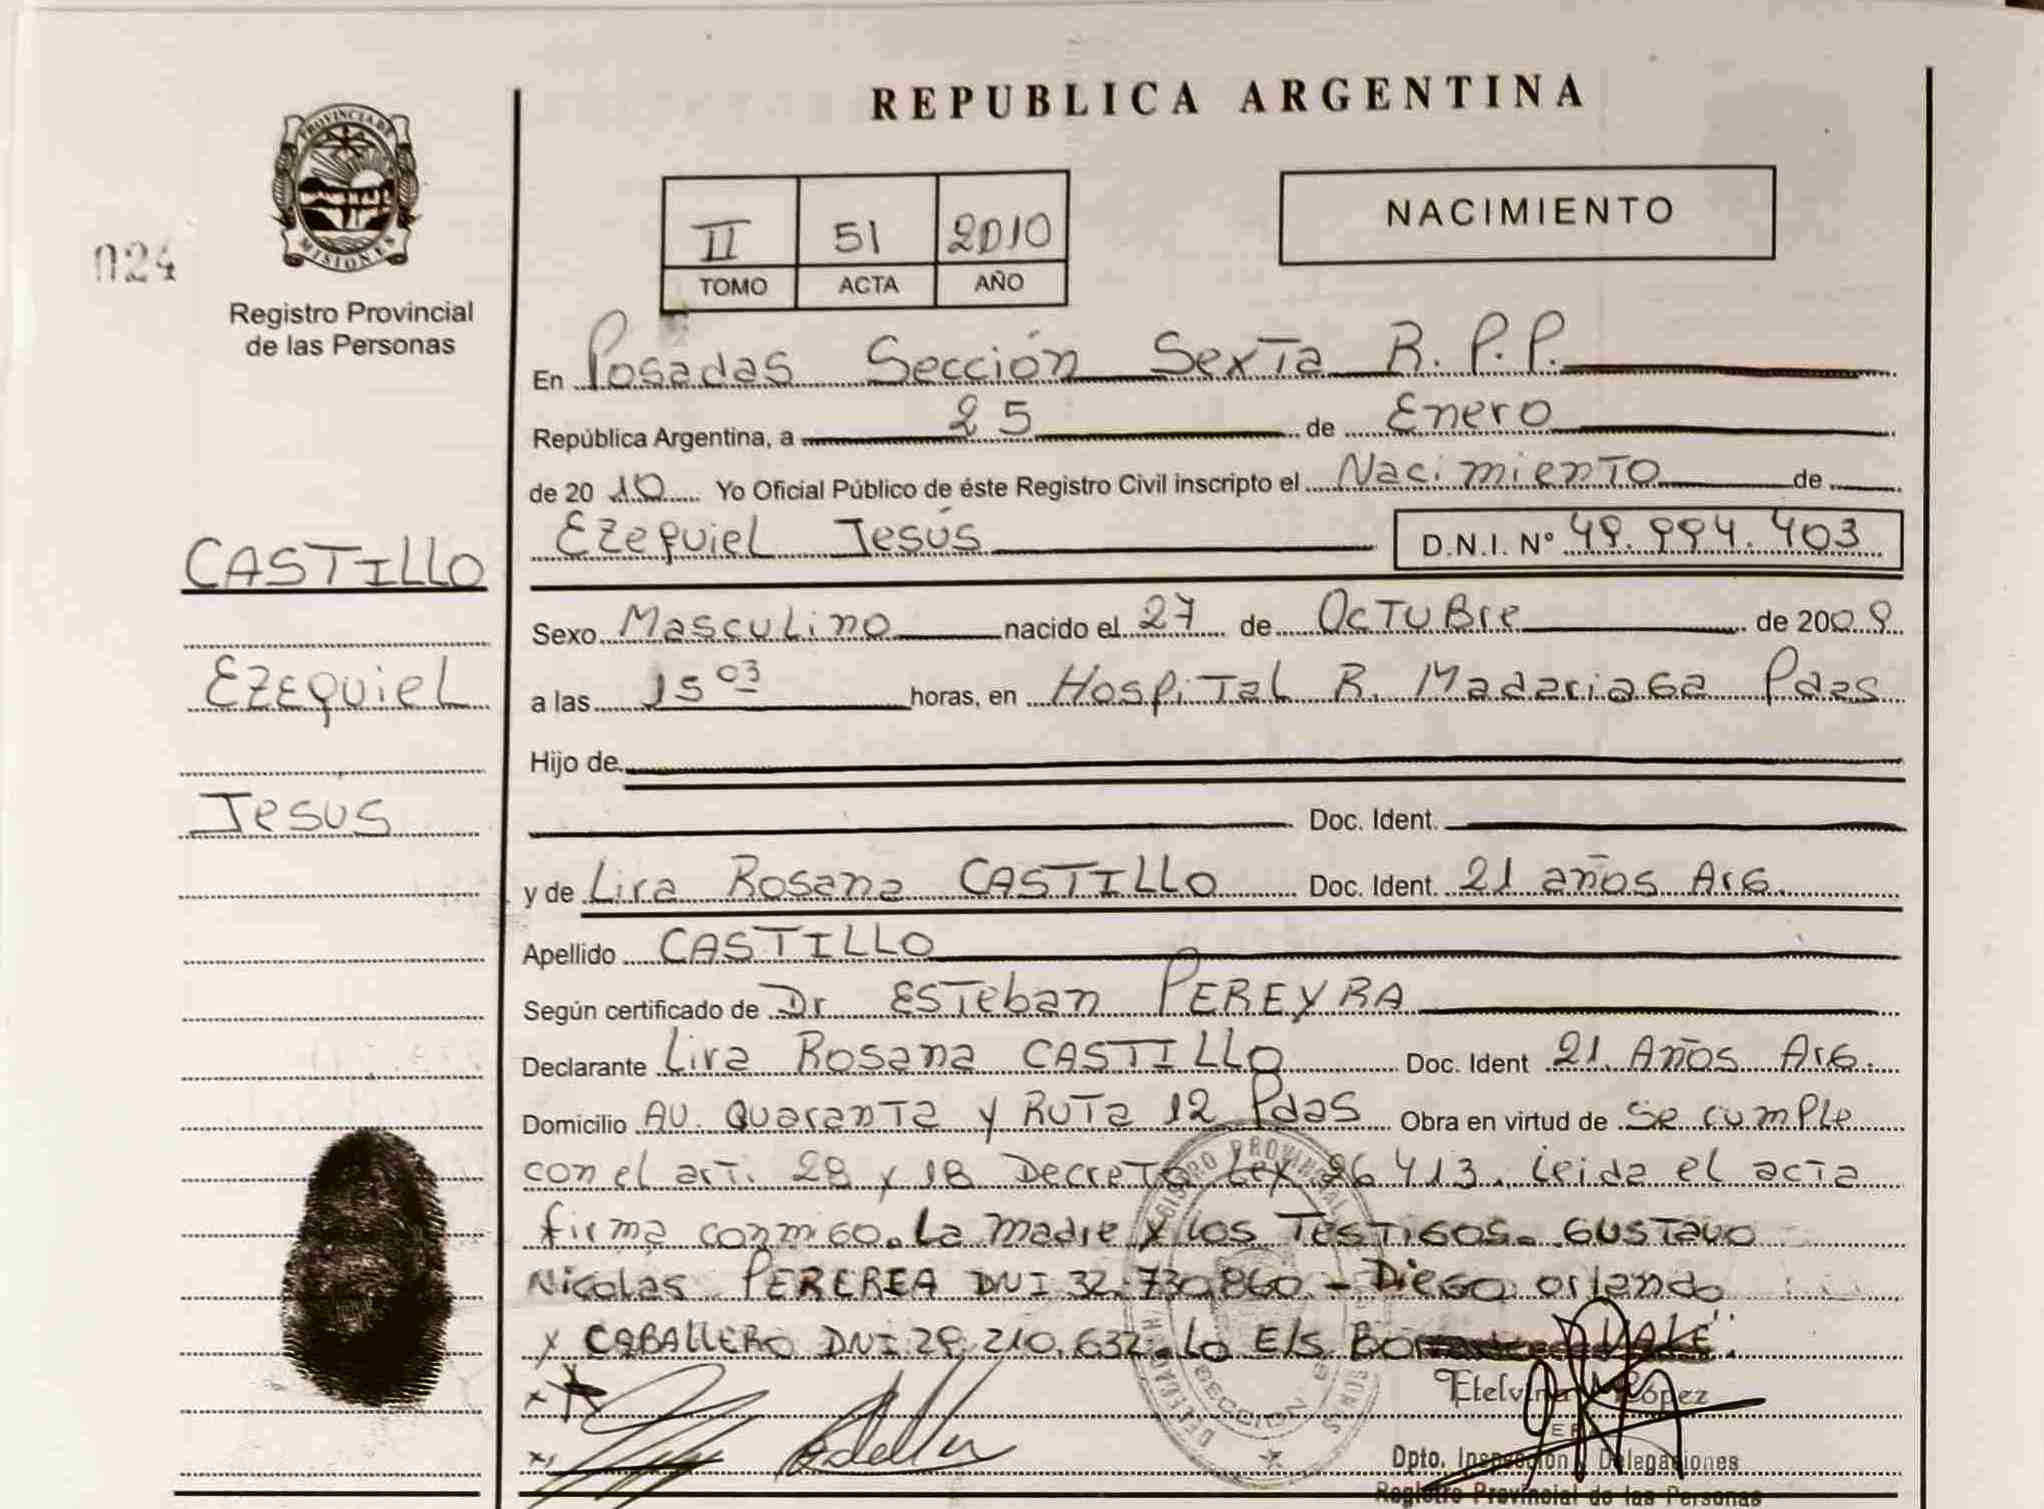 REPUBLICA ARGENTINA
PROVINCIA DE MISIONES
024
Registro Provincial
de las Personas
II 51 2010
TOMO ACTA AÑO
NACIMIENTO
En Posadas Sección Sexta R. P. P.
República Argentina, a 25 de Enero
de 20 10 Yo Oficial Público de éste Registro Civil inscripto el Nacimiento de
Ezequiel Jesús D.N.I. Nº 49.994.403
CASTILLO
Sexo Masculino nacido el 27 de Octubre de 2009
Ezequiel
a las 15 03 horas, en Hospital R. Madariaga Pdas
Hijo de
Jesus
Doc. Ident.
y de Lira Rosana CASTILLO Doc. Ident. 21 años Arg.
Apellido CASTILLO
Según certificado de Dr Esteban PEREYRA
Declarante Lira Rosana CASTILLO Doc. Ident 21 Años Arg.
Domicilio AV. Quaranta y Ruta 12 Pdas Obra en virtud de Se cumple
con el art. 28 y 18 Decreto Ley 26413. Leida el acta
firma conmigo. La madre y los Testigos. Gustavo
Nicolas PEREREA DNI 32.730.860 - Diego orlando
y CABALLERO DNI 29.210.632. Lo E/S VALE
Etelvina López
Dpto. Inspección y Delegaciones
Registro Provincial de las Personas